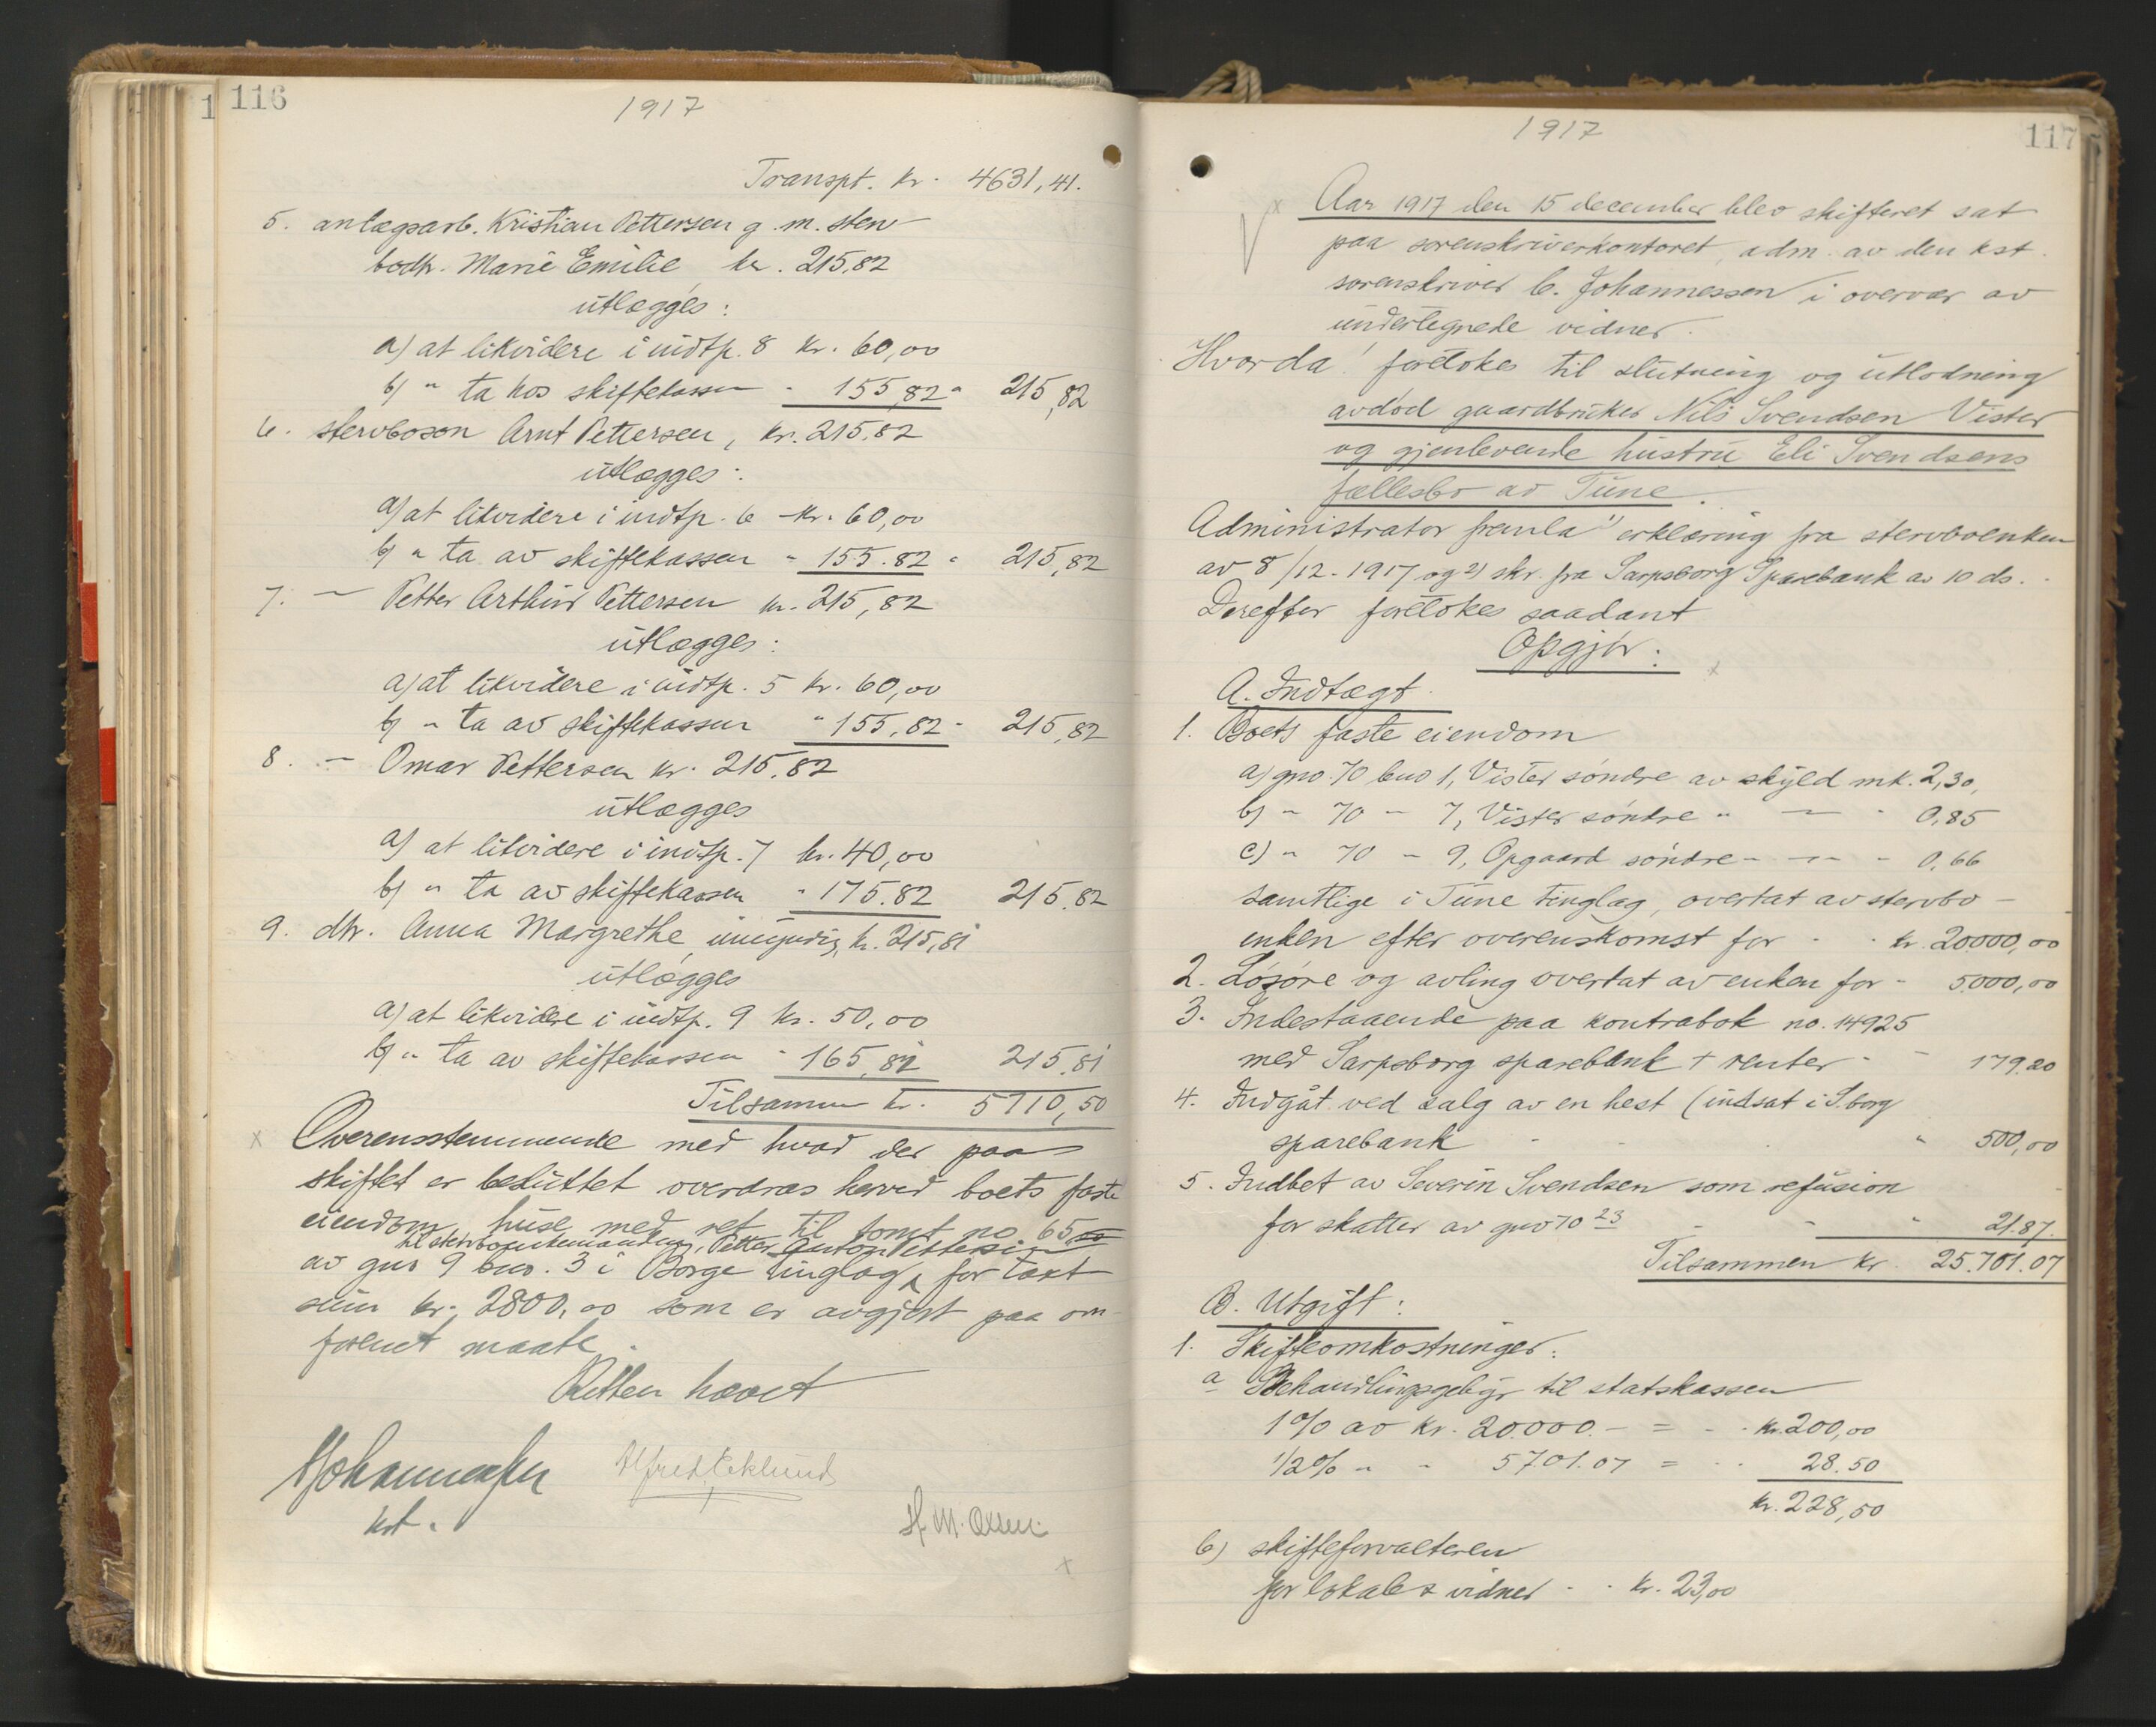 116
1917
Transpt. kr. 4631,41.
5. anlægsarb. Kristian Pettersen g. m. sterv-
bodtr. Marie Emilie kr. 215,82
utlægges:
a) at likvidere i indtp. 8 kr. 60,00
b) " ta hos skiftekassen " 155,82 " 215,82
6. stervboson Arnt Pettersen, kr. 215,82
utlægges:
a) at likvidere i indtp. 6 kr. 60,00
b) " ta av skiftekassen " 155.82 " 215,82
7. — Petter Arthur Pettersen kr. 215,82
utlægges:
a) at likvidere i indtp. 5 kr. 60,00
b) " ta av skiftekassen " 155,82 " 215,82
8. — Omar Pettersen kr. 215,82
utlægges
a) at likvidere i indtp. 7 kr. 40,00
b) " ta av skiftekassen " 175.82 215.82
9. dtr. Anna Margrethe, umyndig, kr. 215,81
utlægges
a) at likvidere i indtp. 9 kr. 50,00
b) " ta av skiftekassen " 165,81 215,81
Tilsammen kr. 5710,50
Overensstemmende med hvad der paa
skiftet er besluttet overdras herved boets faste
eiendom, huse med ret til tomt no 65
til stervboenkemanden, Petter Anton Pettersen
av gno 9 bno. 3 i Borge tinglag for takst
sum kr. 2800,00 som er avgjort paa om-
forenet maate.
Retten hævet
Johannessen
kst.
Alfred Eklund
H. M. Olsen
117
1917
Aar 1917 den 15 december blev skifteret sat
paa sorenskriverkontoret, adm. av den kst.
sorenskriver C. Johannessen i overvær av
undertegnede vidner.
Hvorda! foretokes til slutning og utlodning
avdød gaardbruker Nils Svendsen Vister
og gjenlevende hustru Eli Svendsens
fællesbo av Tune.
Administrator fremla 1) erklæring fra stervboenken
av 8/12-1917 og 2) skr. fra Sarpsborg Sparebank av 10 ds.
Derefter foretokes saadant
Opgjør:
A. Indtægt.
1. Boets faste eiendom
a) gno. 70 bno 1, Vister søndre av skyld mk. 2,30,
b) " 70 " 7, Vister søndre " — " 0,85
c) " 70 " 9, Opgaard søndre " — " 0,66
samtlige i Tune tinglag, overtat av stervbo-
enken efter overenskomst for - - kr. 20000,00
2. Løsøre og avling overtat av enken for " 5000,00
3. Indestaaende paa kontrabok no. 14925
med Sarpsborg sparebank + renter " 179.20
4. Indgåt ved salg av en hest (indsat i S.borg
sparebank " 500,00
5. Indbet av Severin Svendsen som refusion
for skatter av gno 70 23 " 21.87.
Tilsammen kr. 25.701.07
B. Utgift:
1. Skifteomkostninger:
a Behandlingsgebyr til statskassen
1 % av kr. 20.000.- = - kr. 200,00
1/2 % " " 5701.07 = - 28.50
kr. 228,50
b) skifteforvalteren
for lokale & vidner - - kr. 23,00